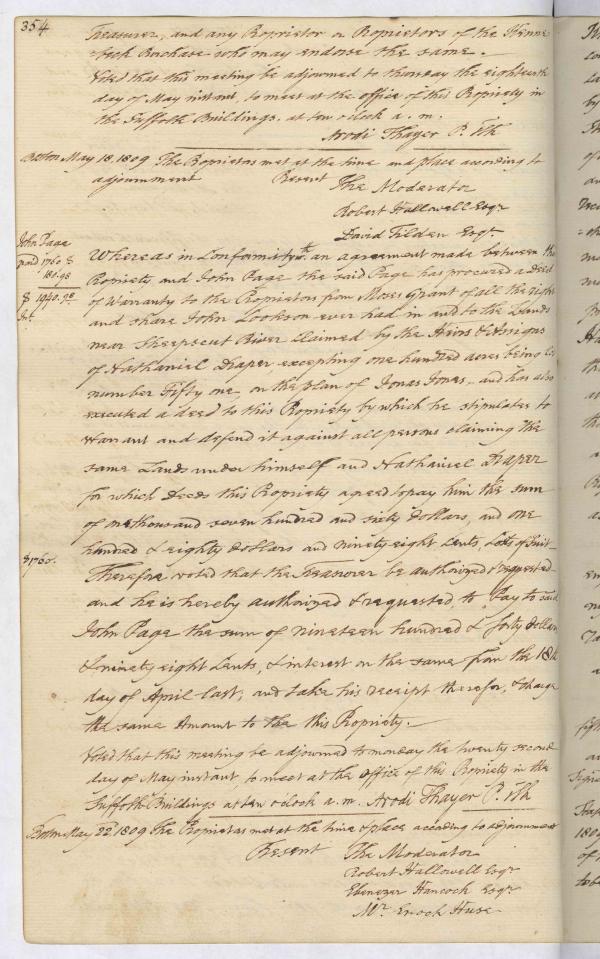 354
Treasurer, and any Proprietor or Proprietors of the Kenne
-beck Purchase who may endorse the same.
Voted that this meeting be adjourned to thursday the eighteenth
day of May instant, to meet at the office of this Propriety in
the Suffolk Buildings. at ten o'clock a. m.
Arodi Thayer P. Clk
Boston May 18. 1809 The Proprietors met at the time and place according to
adjournment Present The Moderator
Robert Hallowell Esqr
David Tilden Esqr
John Page
paid 1760 $
180.98
$ 1940.98
Int.
Whereas in Conformity wth an agreement made between the
Propriety and John Page the said Page has procured a deed
of Warranty to the Proprietors from Moses Grant of all the right
and share John Cookson ever had in and to the Lands
near Sheepscut River Claimed by the Heirs & Assigns
of Nathaniel Draper excepting one hundred acres being Lot
number Fifty one, on the plan of Jonas Jones, and has also
executed a deed to this Propriety by which he stipulates to
Warrant and defend it against all persons claiming the
same Lands under himself and Nathaniel Draper
for which Deeds this Propriety agreed to pay him the sum
of one thousand seven hundred and sixty dollars, and one
hundred & eighty dollars and ninety eight Cents, Costs of Suit
$1760.
Therefore voted that the Treasurer be authorized & requested
and he is hereby authorized & requested, to Pay to said
John Page the sum of nineteen hundred & forty dollars
& ninety eight Cents, & interest on the same from the 18th
day of April last, and take his receipt therefor, & charge
the same Amount to the this Propriety.
Voted that this meeting be adjourned to monday the twenty second
day of May instant, to meet at the office of this Propriety in the
Suffolk Buildings at ten o'clock a. m. Arodi Thayer P. Clk
Boston May 22d 1809 The Proprietors met at the time & place according to adjournment
Present The Moderator
Robert Hallowell Esqr
Ebenezer Hancock Esqr
Mr. Enoch Huse